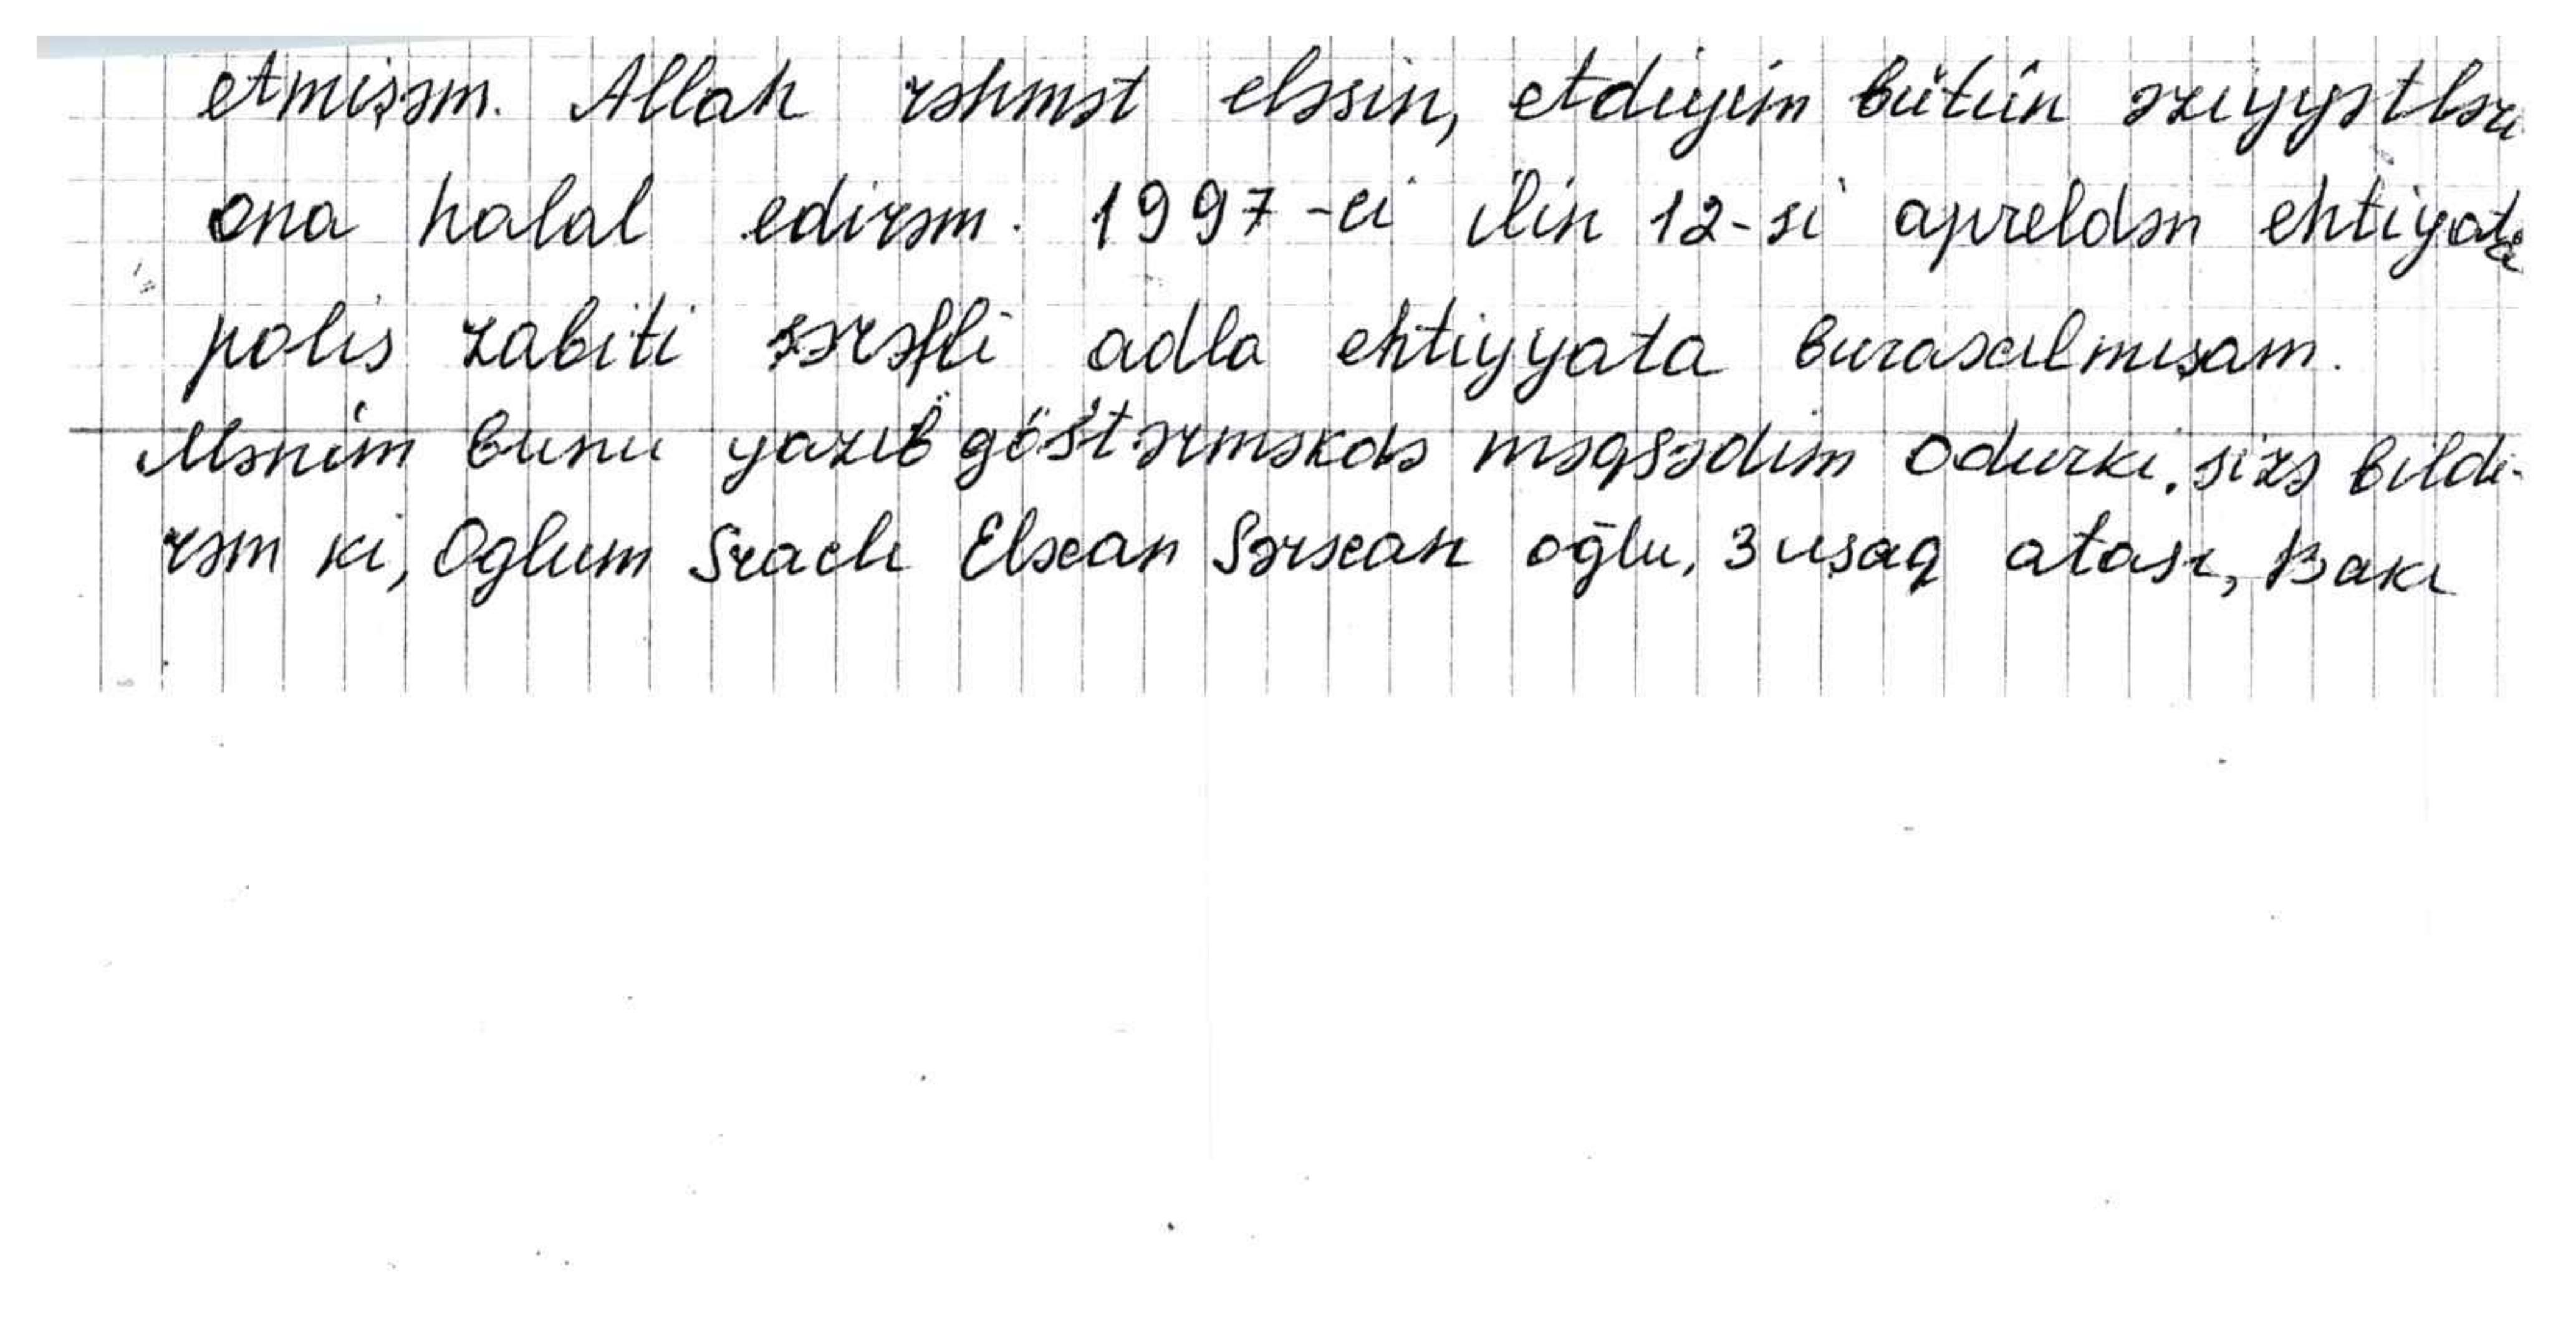 etmişəm. Allah rəhmət eləsin, etdiyim bütün əziyyətləri
ona halal edirəm. 1997-ci ilin 12-si apreldən ehtiyata
polis zabiti şərəfli adla ehtiyyata buraxılmışam.
Mənim bunu yazıb göstərməkdə məqsədim odurki, sizə bildi-
rəm ki, Oglum Elxan Sərxan oğlu, 3 uşaq atası, Bakı